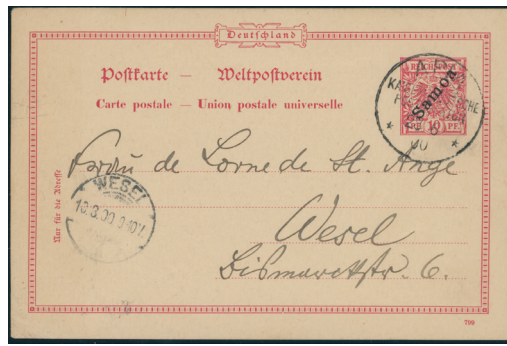 Deutschland
Postkarte — Weltpostverein
Carte postale — Union postale universelle
REICHSPOST
Samoa
10 PF.
Nur für die Adresse
WESEL
de Lorne de St. Ange
Wesel
Bismarckstr. 6.
799